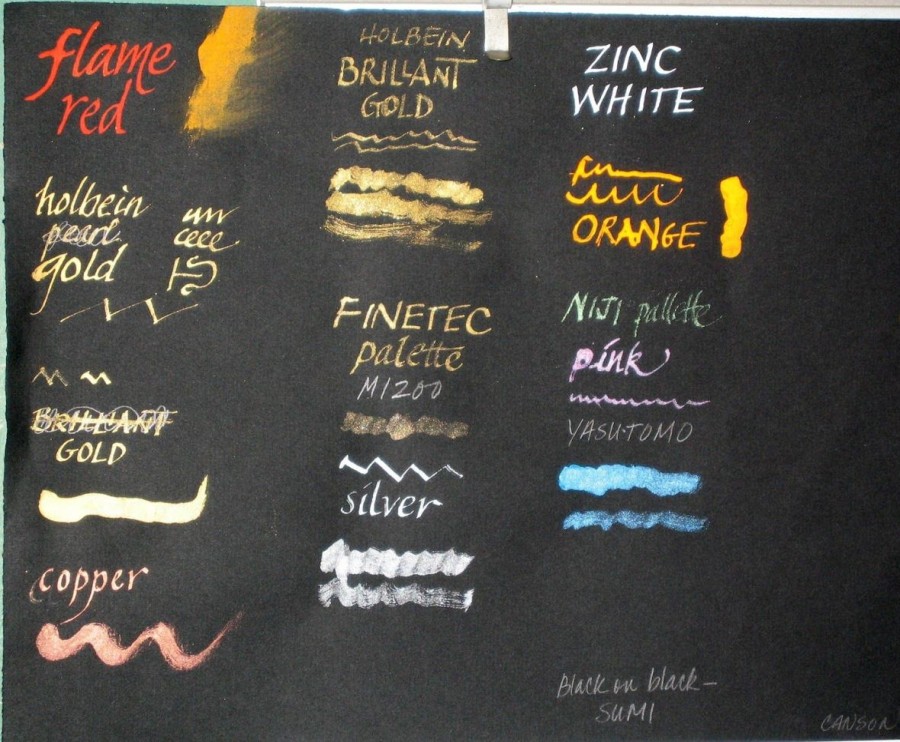 flame
red
holbein
pearl
gold
BRILLIANT
GOLD
copper
HOLBEIN
BRILLANT
GOLD
FINETEC
palette
M1200
silver
ZINC
WHITE
ORANGE
NIJI pallette
pink
YASUTOMO
Black on black –
SUMI
CANSON